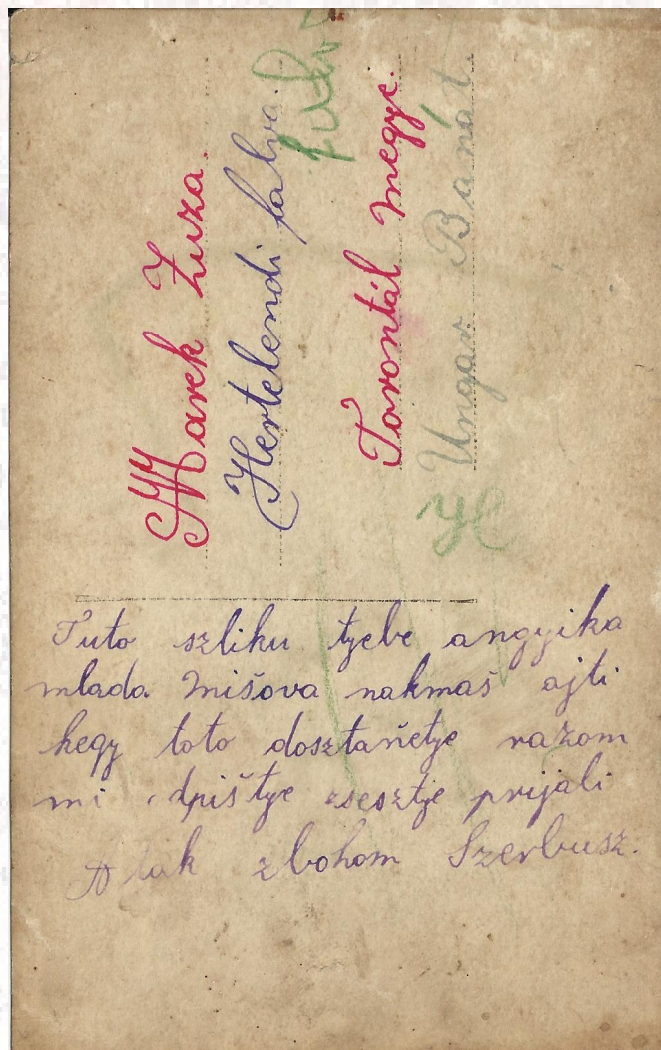 Marek Zuza.
Hertelendi falva.
Torontál megye.
Ungar Banát
Tuto szliku tyebe angyika
mlada Mišova nakmaš ajti
kegy toto dosztaňetye razom
mi odpištye zsesztye prijali
A tak zbohom Szerbusz.